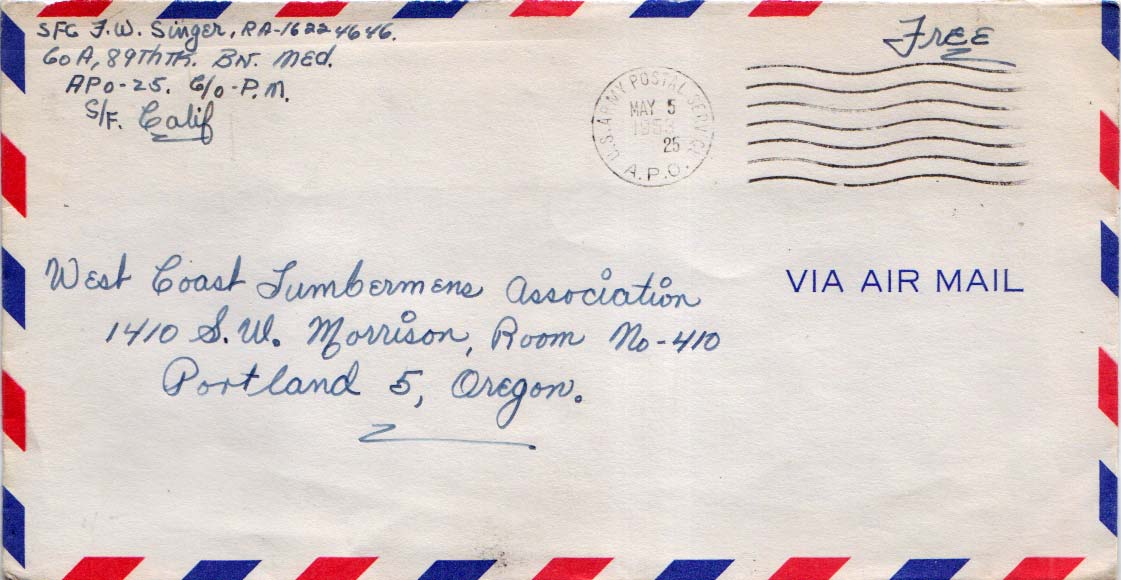 SFC F.W. Singer, RA-16224646.
Co A, 89th Tk. Bn. Med.
APO-25. C/o-P.M.
S/F. Calif
Free
U.S. ARMY POSTAL SERVICE
MAY 5
1953
25
A.P.O.
VIA AIR MAIL
West Coast Lumbermens Association
1410 S.W. Morrison, Room No-410
Portland 5, Oregon.